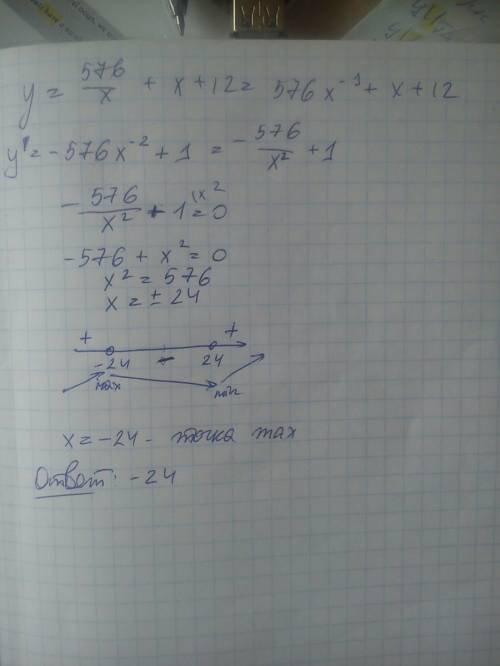 y = 576/x + x + 12 = 576x⁻¹ + x + 12
y' = -576x⁻² + 1 = -576/x² + 1
-576/x² + 1 = 0 |x²
-576 + x² = 0
x² = 576
x = ± 24
+ - +
-24 24
max min
x = -24 - точка max
Ответ: -24